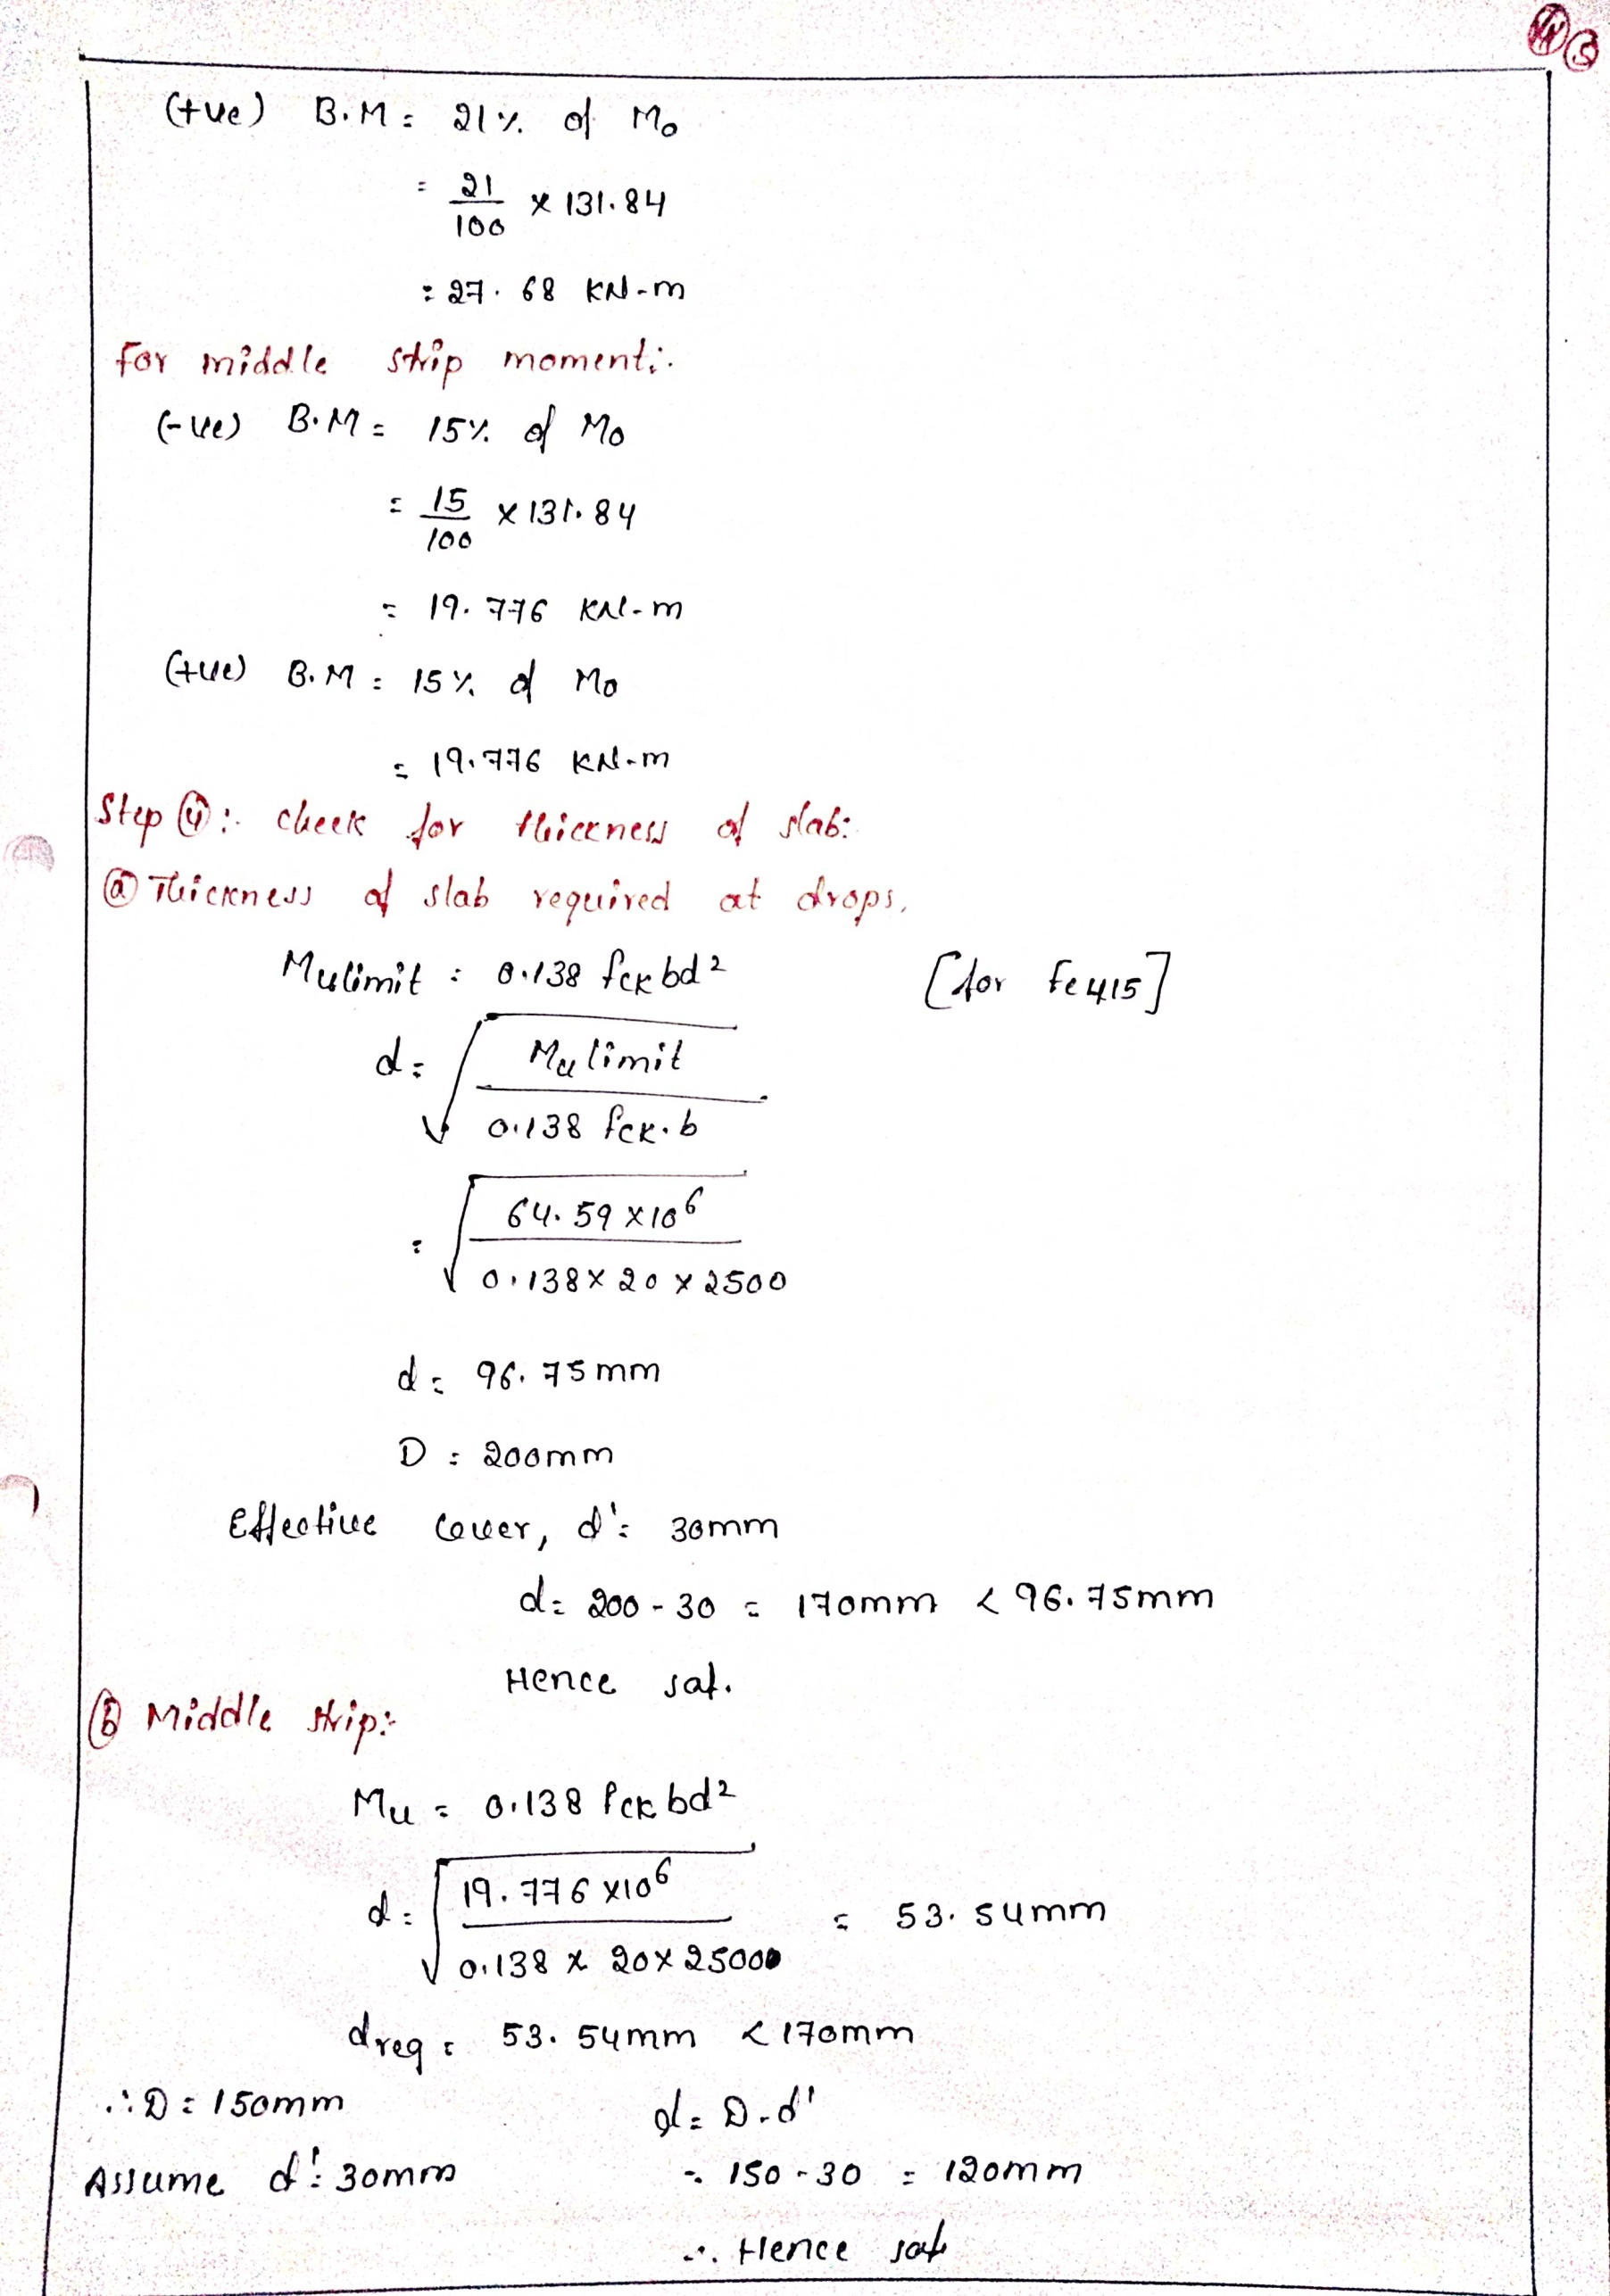 (+ve) B.M = 21% of Mo
= 21/100 × 131.84
= 27.68 KN-m
For middle strip moment:-
(-ve) B.M = 15% of Mo
= 15/100 × 131.84
= 19.776 KN-m
(+ve) B.M = 15% of Mo
= 19.776 KN-m
Step ④:- check for thickness of slab:
ⓐ Thickness of slab required at drops.
Mulimit = 0.138 fck bd² [for fe415]
d = √(Mu limit / 0.138 fck.b)
= √(64.59 × 10⁶ / 0.138 × 20 × 2500)
d = 96.75mm
D = 200mm
Effective cover, d' = 30mm
d = 200 - 30 = 170mm < 96.75mm
Hence saf.
ⓑ Middle strip:-
Mu = 0.138 fck bd²
d = √(19.776 × 10⁶ / 0.138 × 20 × 2500) = 53.54mm
dreq = 53.54mm < 170mm
∴ D = 150mm d = D - d'
Assume d' = 30mm = 150 - 30 = 120mm
∴ Hence safe